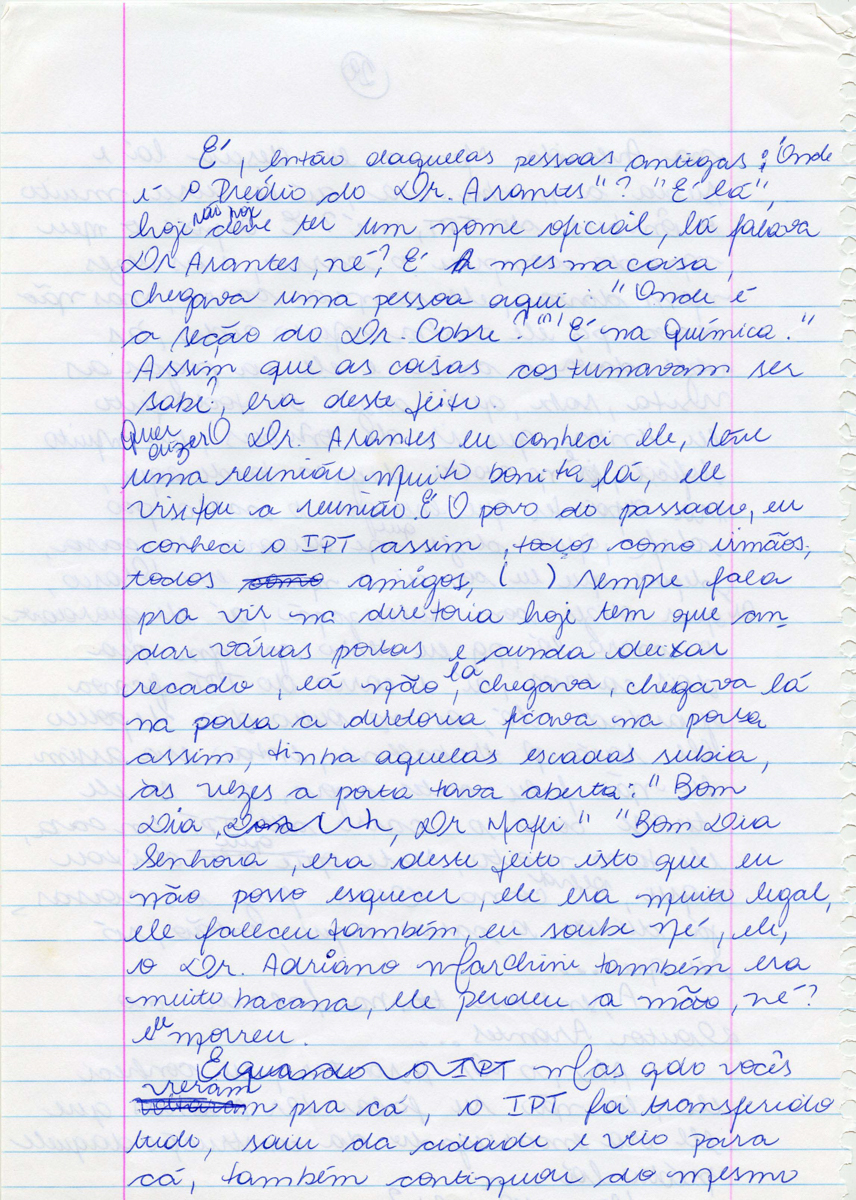 É, então daquelas pessoas antigas: "Onde
é o Prédio do Dr. Arantes"? "É lá",
hoje não hoje deve ter um nome oficial, lá falava
Dr Arantes, né? É a mesma coisa,
chegava uma pessoa aqui: "Onde é
a seção do Dr. Cobre?" "É na Química."
Assim que as coisas costumavam ser
sabe?, era deste jeito.
Quer dizer O Dr. Arantes eu conheci ele, teve
uma reunião muito bonita lá, ele
visitou a reunião. É O povo do passado, eu
conheci o IPT assim, todos como irmãos,
todos como amigos, ( ) sempre fala
pra vir na diretoria hoje tem que an-
dar várias portas e ainda deixar
recado, lá não, lá chegava, chegava lá
na porta a diretoria ficava na porta
assim, tinha aquelas escadas subia,
às vezes a porta tava aberta: "Bom
Dia, Dr Mafei" "Bom Dia
Senhora, era deste jeito isto que eu
não posso esquecer, ele era muito legal,
ele faleceu também, eu soube né, ele,
o Dr. Adriano Marchini também era
muito bacana, ele perdeu a mão, né?
ele morreu.
E quando o IPT Mas qdo vocês
vieram pra cá, o IPT foi transferido
tudo, saiu da cidade e veio para
cá, também continuou do mesmo